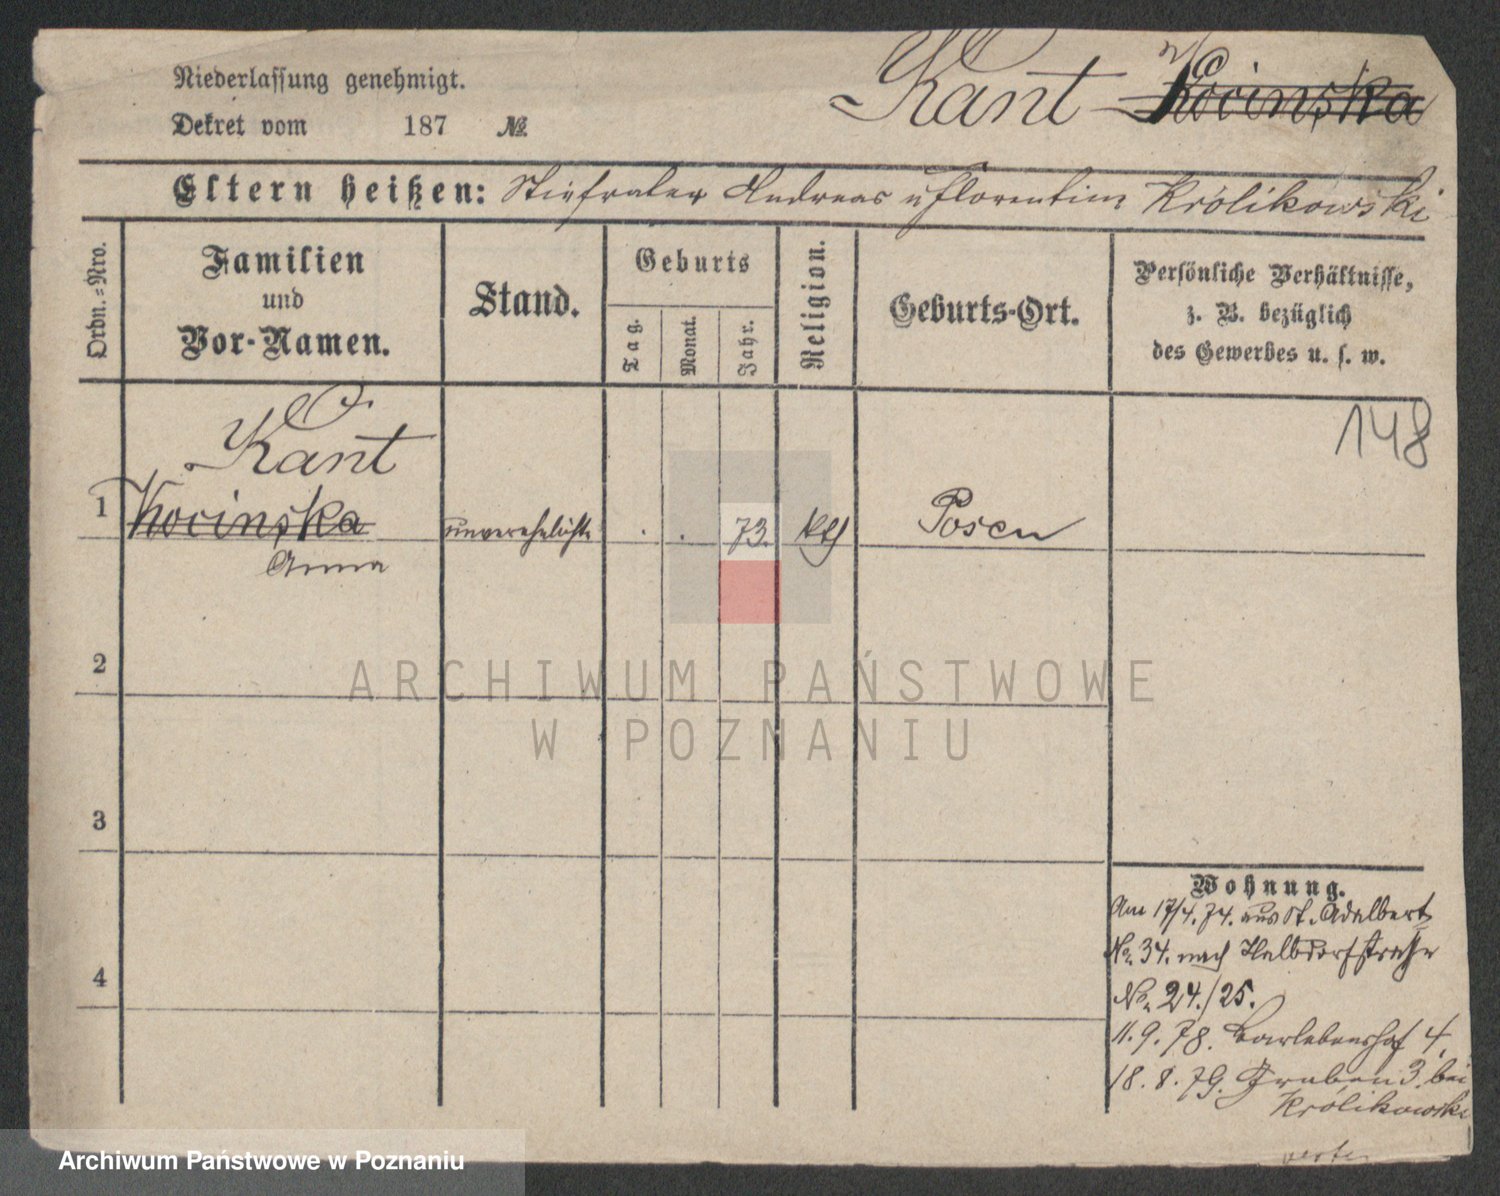 Niederlassung genehmigt.
Dekret vom 187 №
Kant Kocinska
Eltern heißen: Stiefvater Andreas u Florentine Królikowski
Ordn.=Nro.
Familien
und
Vor-Namen.
Stand.
Geburts
Tag.
Monat.
Jahr.
Religion.
Geburts-Ort.
Persönliche Verhältnisse,
z. B. bezüglich
des Gewerbes u. s. w.
148
Kant
1 Kocinska unverehelichte . . 73. kth Posen
Anna
2
3
4
Wohnung.
Am 17/4. 74. aus St. Adalbert
No. 34. nach Halbdorfstraße
No. 24./25.
11. 9. 78. Barlebenshof 4.
18. 8. 79. Graben 3. bei
Królikowski
verte
ARCHIWUM PAŃSTWOWE
W POZNANIU
Archiwum Państwowe w Poznaniu